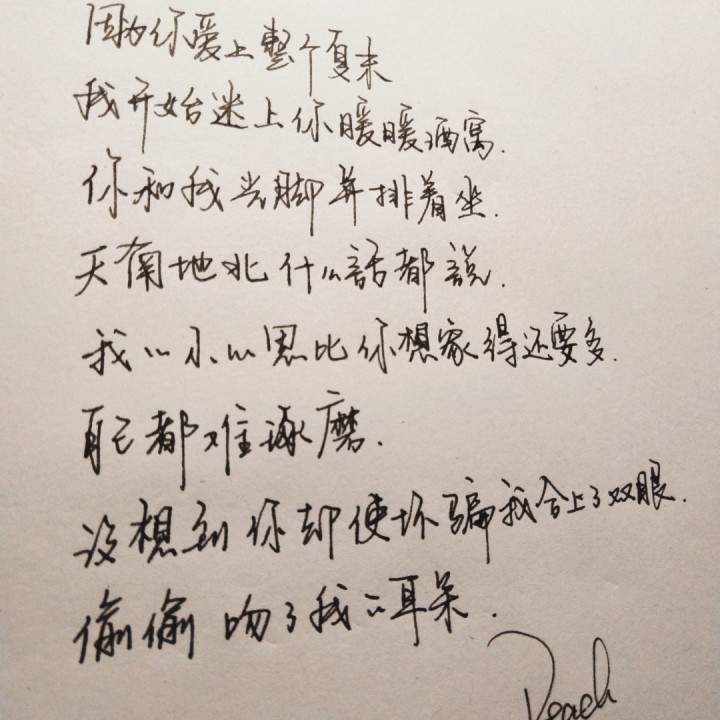 因为你爱上整个夏末
我开始迷上你暖暖酒窝.
你和我光脚并排着坐.
天南地北什么話都說.
我心小心思比你想象得还要多.
自己都难琢磨.
没想到你却使坏骗我合上了双眼.
偷偷吻了我的耳朵.
Peach